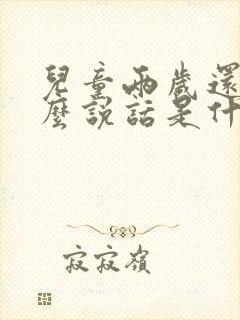 兒童兩歲還
麼說話是什
寂寂嶺